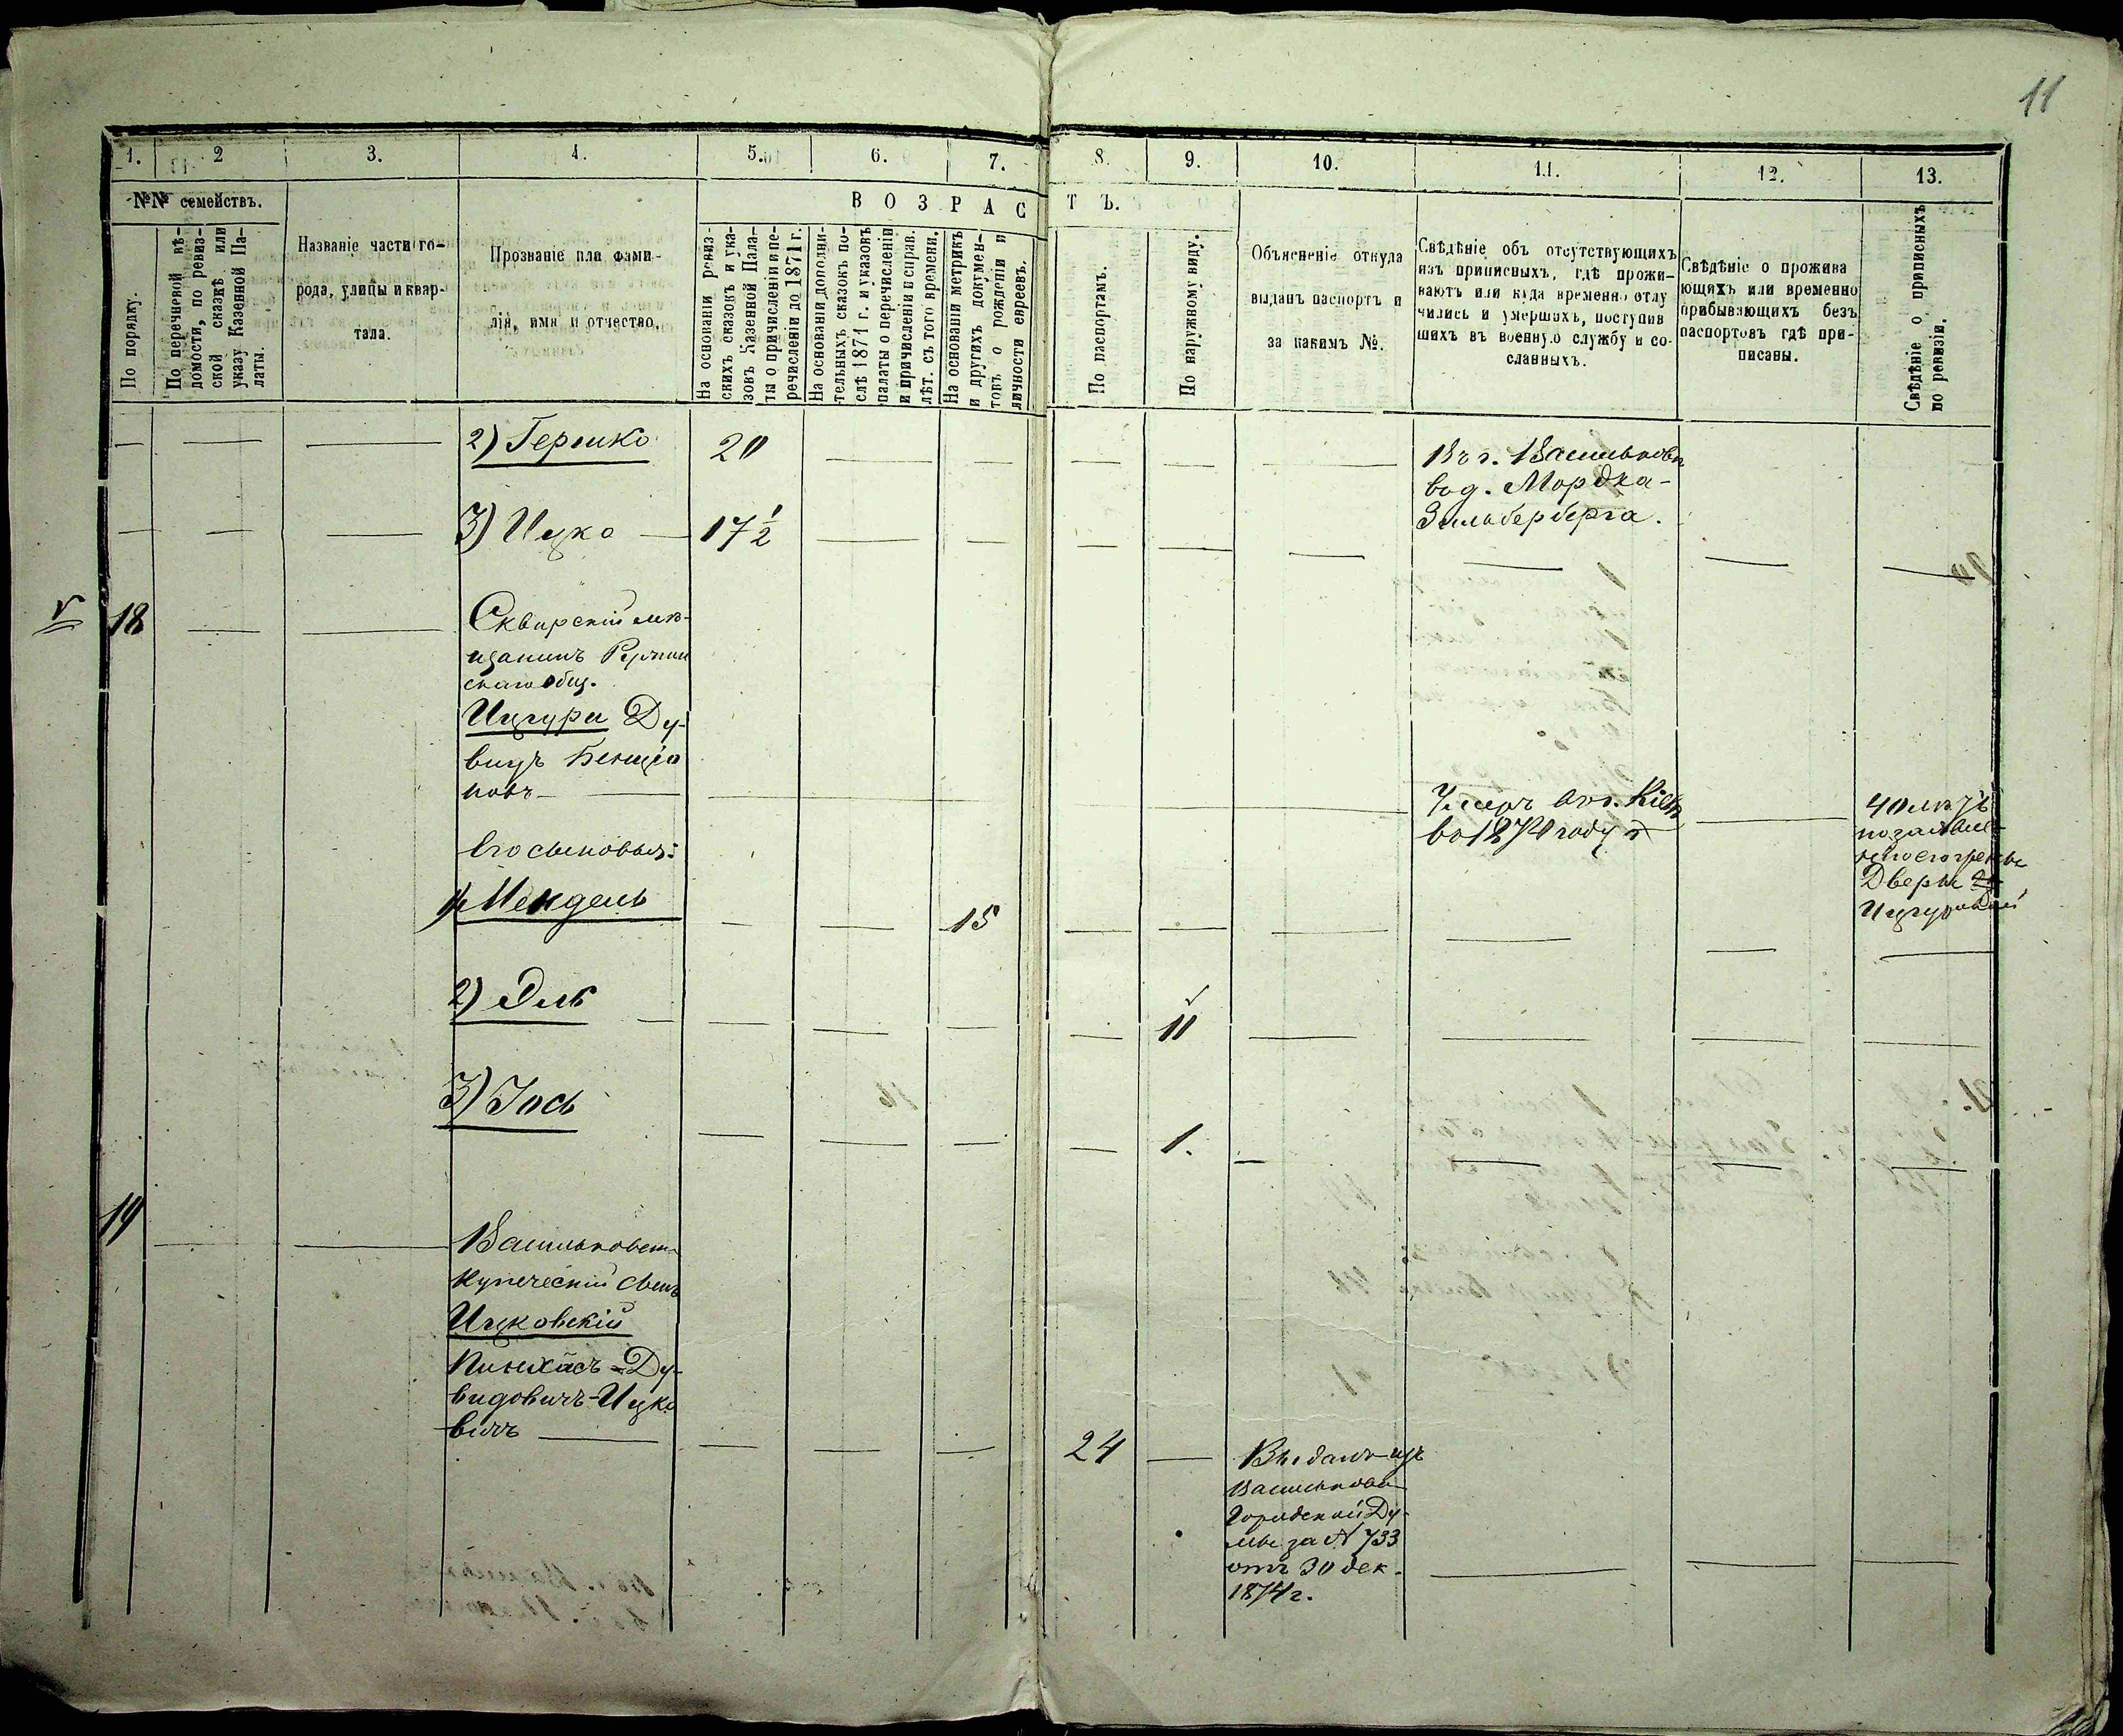 11
1. 2 3. 4. 5. 6. 7. 8. 9. 10. 11. 12. 13.
№№ семействъ.
По порядку.
По перечневой вѣ-
домости, по ревиз-
ской сказкѣ или
указу Казенной Па-
латы.
Названіе части го-
рода, улицы и квар-
тала.
Прозваніе или фами-
лія, имя и отчество.
ВОЗРАСТЪ.
На основаніи ревиз-
скихъ сказокъ и ука-
зовъ Казенной Пала-
ты о причисленіи и пе-
речисленіи до 1871 г.
На основаніи дополни-
тельныхъ сказокъ по-
слѣ 1871 г. и указовъ
палаты о перечисленіи
и причисленіи и справ.
лѣт. съ того времени.
На основаніи метрикъ
и другихъ докумен-
товъ о рожденіи и
личности евреевъ.
По паспортамъ.
По наружному виду.
Объясненіе откуда
выданъ паспортъ и
за какимъ №.
Свѣдѣніе объ отсутствующихъ
изъ приписныхъ, гдѣ прожи-
ваютъ или куда временно отлу
чились и умершихъ, поступив
шихъ въ военную службу и со-
сланныхъ.
Свѣдѣніе о прожива
ющихъ или временно
прибывающихъ безъ
паспортовъ гдѣ при-
писаны.
Свѣдѣніе о приписныхъ
по ревизіи.
2) Гершко 20
Въ г. Васильковѣ
вод. Мордка-
Зильберберга.
3) Ицко 17 1/2
18
Сквирскій мѣ-
щанинъ
скаго общ.
Ицгури Ду-
видъ Бенціо
новъ
Умеръ въ г. Кіевѣ
во 1874 году
40 лѣтъ
Двери
Его сыновья:
1) Мендель 15
2) Эль 11
3) Іось 1.
19
Васильковск.
Купеческій сынъ
Ицковскій
Пинхасъ-Ду-
видовичъ-Ицко
вичъ
24
Выданъ изъ
Васильков.
Городской Ду-
мы за № 733
отъ 30 дек.
1874 г.